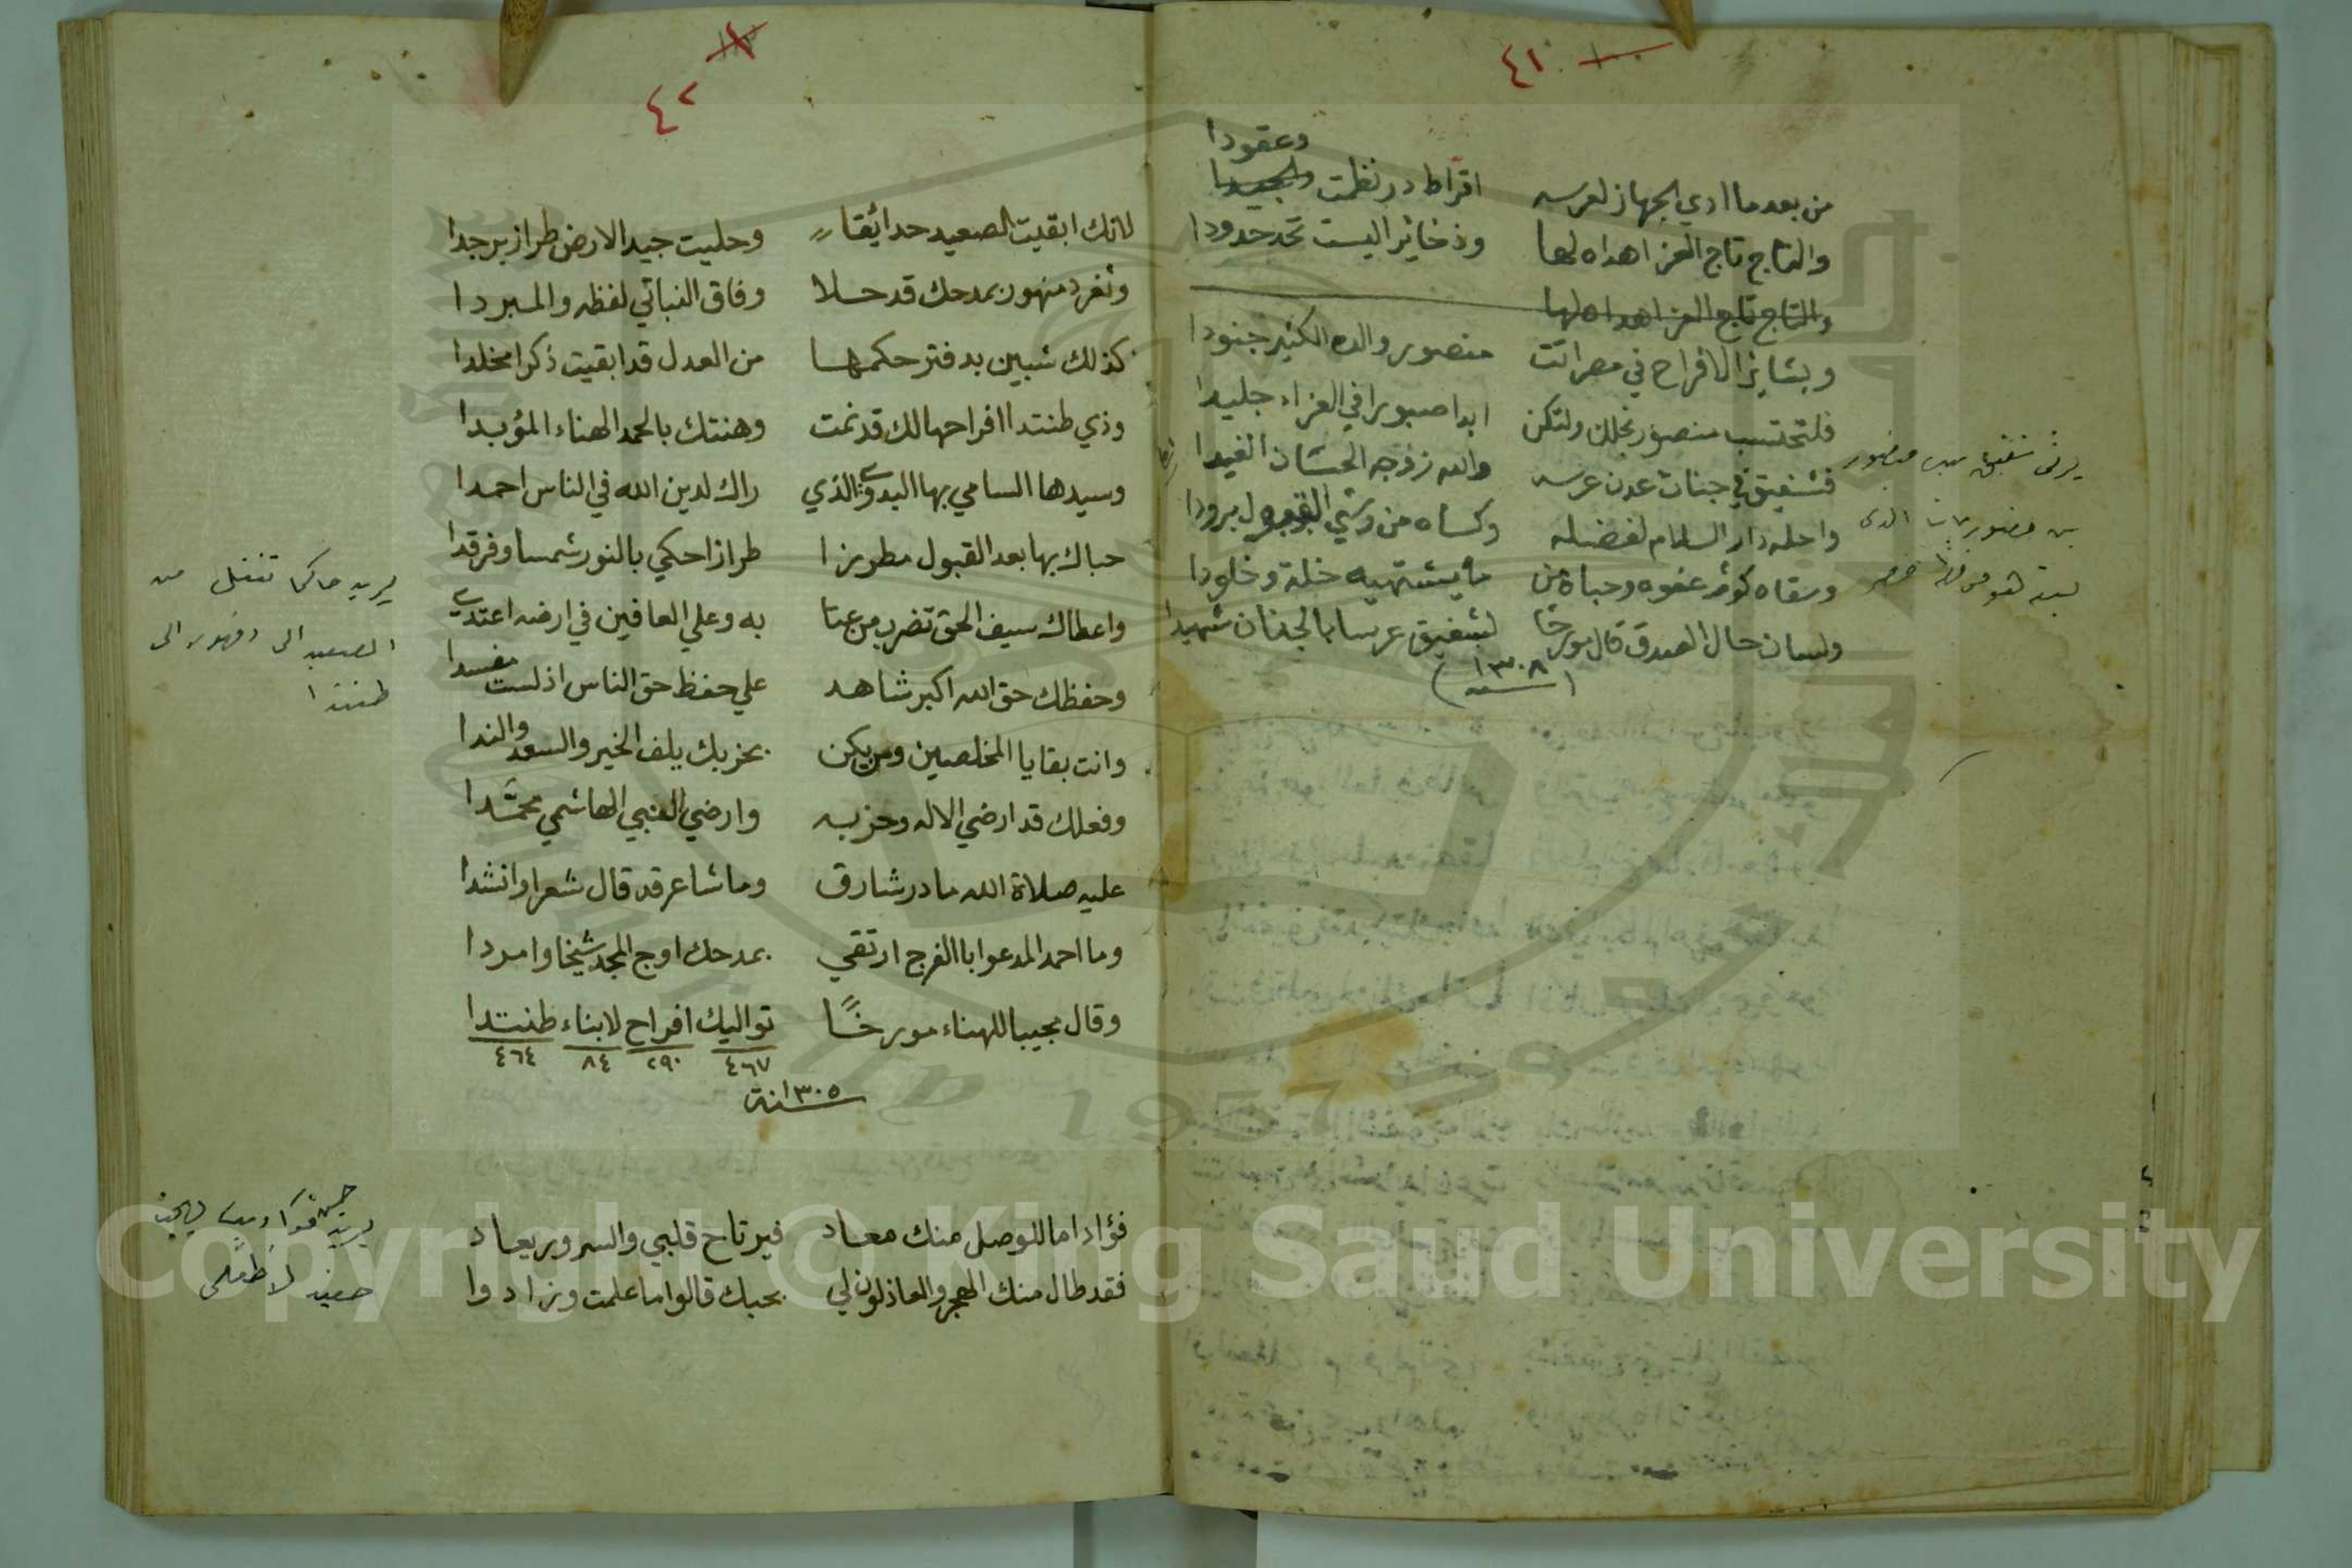 ٤١
وعقودا
من بعد ما ادي الجهاز لعرسه اقراط در نظمت والجيدا
والتاج تاج العز اهداه لها وذخائرا ليست تحد حدودا
والتاج تاج العز اهداه لها
وبشائر الافراح في مصر اتت منصور والده الكثير جنودا
فلتحتسب منصور نجلك ولتكن ابدا صبورا في العزاء جليدا
فشفيق في جنات عدن عرسه والله زوجه الحسان الغيدا
واحله دار السلام لفضله وكساه من وشي القبول برودا
وسقاه كوثر عفوه وحباه من ما يشتهيه خلة وخلودا
ولسان حال الصدق قال مورخا لشفيق عرسا بالجنان شهيدا
سنة ١٣٠٨
يرثى شفيق بيك منصور
بن منصور باشا الذى
٤٢
لانك ابقيت الصعيد حدائقا وحليت جيد الارض طراز برجدا
وثغر دمنهور بمدحك قد حلا وفاق النباتي لفظه والمبردا
كذلك شبين بدفتر حكمها من العدل قد ابقيت ذكرا مخلدا
وذي طنتدا افراحها لك قد نمت وهنتك بالحمد الهناء المؤبدا
وسيدها السامي بها البدوي الذي راك لدين الله في الناس احمدا
حباك بها بعد القبول مطرزا طرازا حكي بالنور شمسا وفرقدا
واعطاك سيف الحق تضرب من عتا به وعلي العافين في ارضه اعتدي
وحفظك حق الله اكبر شاهد علي حفظ حق الناس اذ لست مفسدا
وانت بقايا المخلصين ومن يكن بحزبك يلف الخير والسعد والندا
وفعلك قد ارضي الاله وحزبه وارضي النبي الهاشمي محمدا
عليه صلاة الله ما در شارق وما شاعر قد قال شعرا وانشدا
وما احمد المدعو ابا الفرج ارتقي بمدحك اوج المجد شيخا وامردا
وقال مجيبا للهناء مورخا تواليك افراح لابناء طنتدا
٤٦٧ ٢٩٠ ٨٤ ٤٦٤
سنة ١٣٠٥
يريد حاكما تنقل من
الصعيد الى دمنهور الى
طنتدا
فؤاد اما للوصل منك معاد فيرتاح قلبي والسرور يعاد
فقد طال منك الهجر والعاذلون لي بحبك قالوا ما علمت وزادوا
Copyright © King Saud University
1957